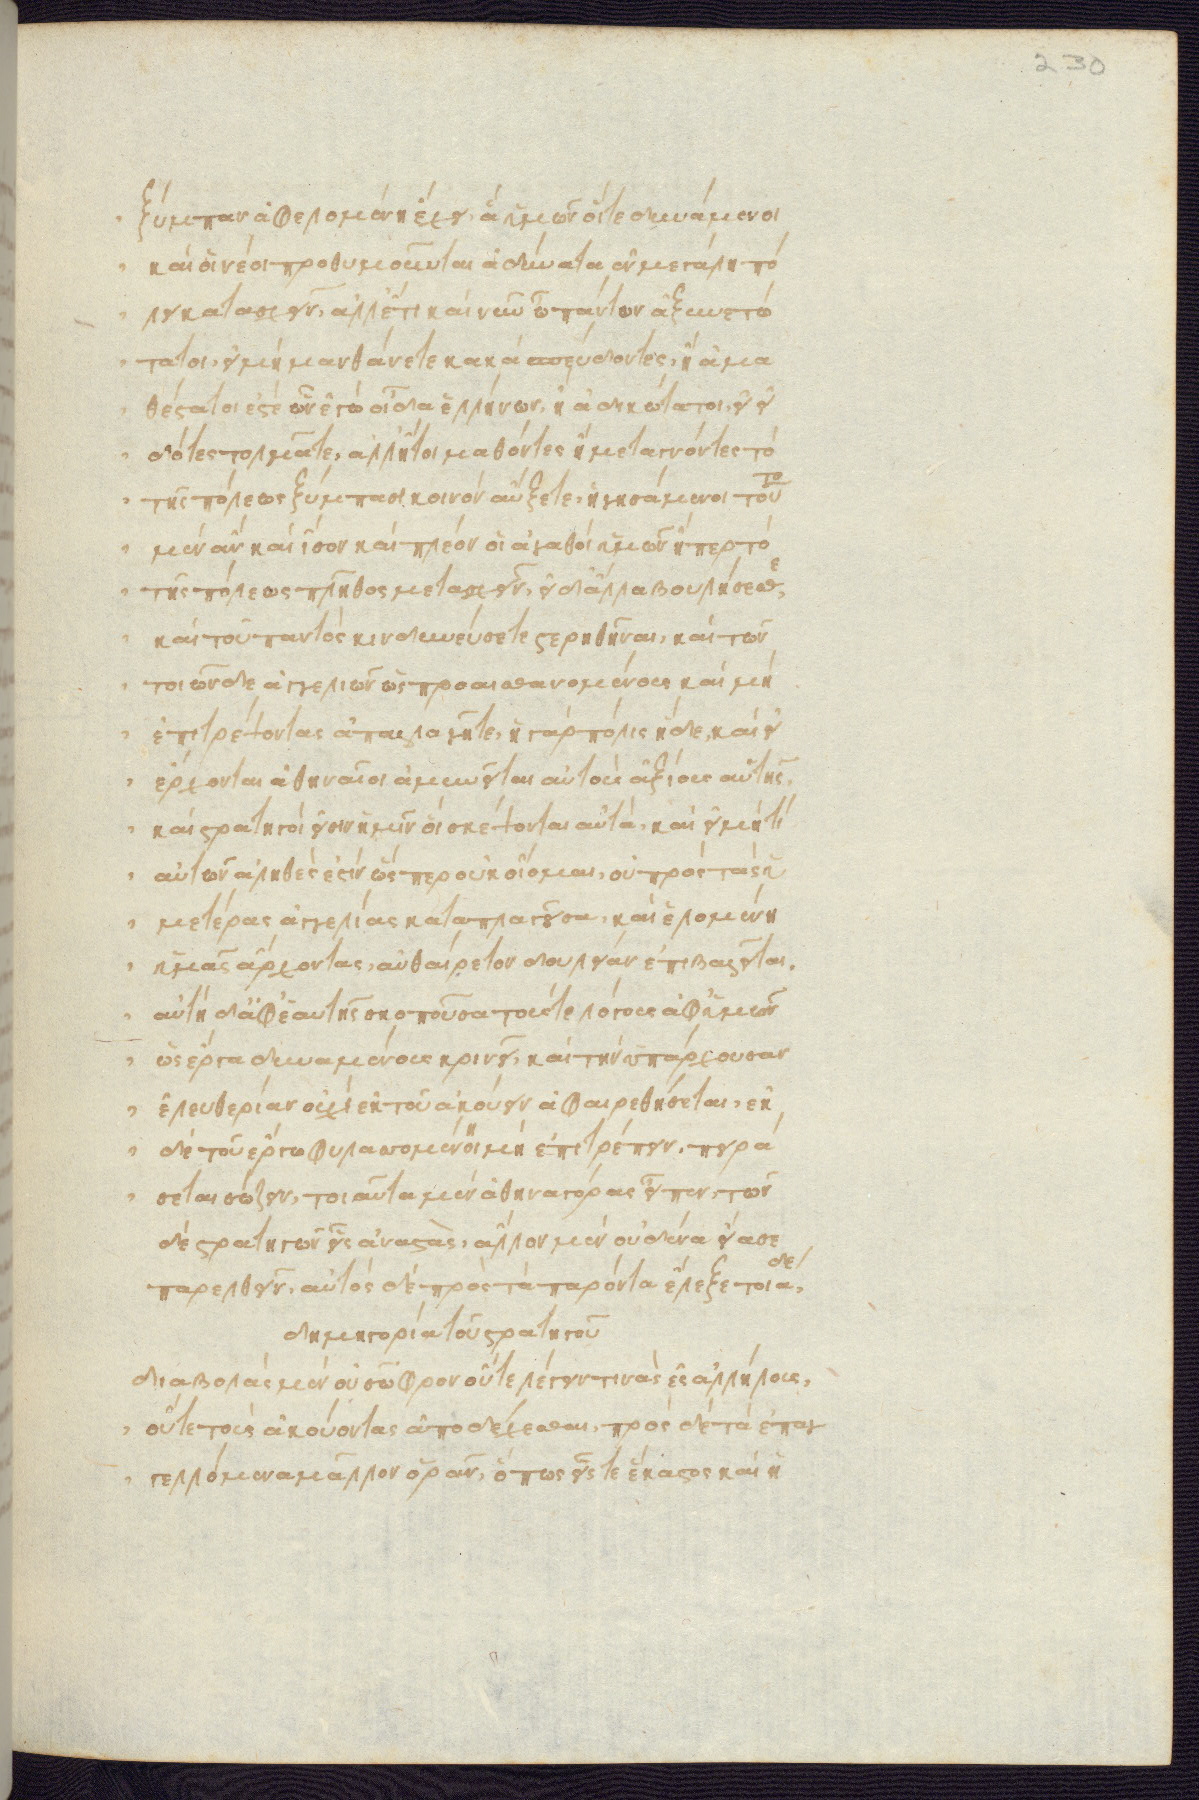 230
ξύμπαν ἀφελομένη ἔχει, ἃ ὑμῶν οἵτε δυνάμενοι
καὶ οἱ νέοι προθυμοῦνται ἀδύνατα ἐν μεγάλῃ πό
λει κατασχεῖν, ἀλλ' ἔτι καὶ νῦν ὦ πάντων ἀξυνετώ
τατοι, εἰ μὴ μανθάνετε κακὰ σπεύδοντες, ἢ ἀμα
θέστατοι ἐστὲ ὧν ἐγὼ οἶδα ἑλλήνων, ἢ ἀδικώτατοι, εἰ εἰ
δότες τολμᾶτε, ἀλλ' ἤτοι μαθόντες ἢ μεταγνόντες τὸ
τῆς πόλεως ξύμπασι κοινὸν αὔξετε, ἡγησάμενοι τοῦτο
μὲν ἂν καὶ ἴσον καὶ πλέον οἱ ἀγαθοὶ ὑμῶν ἤπερ τὸ
τῆς πόλεως πλῆθος μετασχεῖν, εἰ δ' ἄλλα βουλήσεσθε,
καὶ τοῦ παντὸς κινδυνεύσετε στερηθῆναι, καὶ τῶν
τοιῶνδε ἀγγελιῶν ὡς προαισθανομένους καὶ μὴ
ἐπιτρέψοντας ἀπαλλάγητε, ἡ γὰρ πόλις ἥδε, καὶ εἰ
ἔρχονται ἀθηναῖοι ἀμυνεῖται αὐτοὺς ἀξίως αὑτῆς,
καὶ στρατηγοί εἰσιν ἡμῖν οἳ σκέψονται αὐτά, καὶ εἰ μή τι
αὐτῶν ἀληθές ἐστιν ὥσπερ οὐκ οἴομαι, οὐ πρὸς τὰς ὑ
μετέρας ἀγγελίας καταπλαγεῖσα, καὶ ἑλομένη
ὑμᾶς ἄρχοντας, αὐθαίρετον δουλείαν ἐπιβαλεῖται,
αὐτὴ δ' ἐφ' ἑαυτῆς σκοποῦσα τούς τε λόγους ἀφ' ὑμῶν
ὡς ἔργα δυναμένους κρινεῖ, καὶ τὴν ὑπάρχουσαν
ἐλευθερίαν οὐχὶ ἐκ τοῦ ἀκούειν ἀφαιρεθήσεται, ἐκ
δὲ τοῦ ἔργῳ φυλασσομένη μὴ ἐπιτρέπειν, πειρά
σεται σώζειν, τοιαῦτα μὲν ἀθηναγόρας εἶπεν, τῶν
δὲ στρατηγῶν εἷς ἀναστὰς, ἄλλον μὲν οὐδένα εἴασε
παρελθεῖν, αὐτὸς δὲ πρὸς τὰ παρόντα ἔλεξε τοιάδε,
δημηγορία τοῦ στρατηγοῦ
διαβολὰς μὲν οὐ σῶφρον οὔτε λέγειν τινὰς ἐς ἀλλήλους,
οὔτε τοὺς ἀκούοντας ἀποδέχεσθαι, πρὸς δὲ τὰ ἐπαγ
γελλόμενα μᾶλλον ὁρᾶν, ὅπως εἷς τε ἕκαστος καὶ ἡ